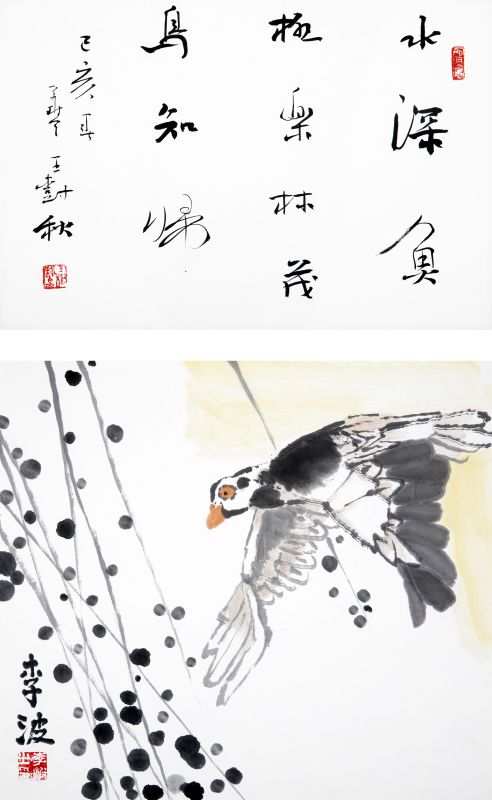 水深魚
極樂林茂
鳥知歸
己亥夏
王樹秋
李波